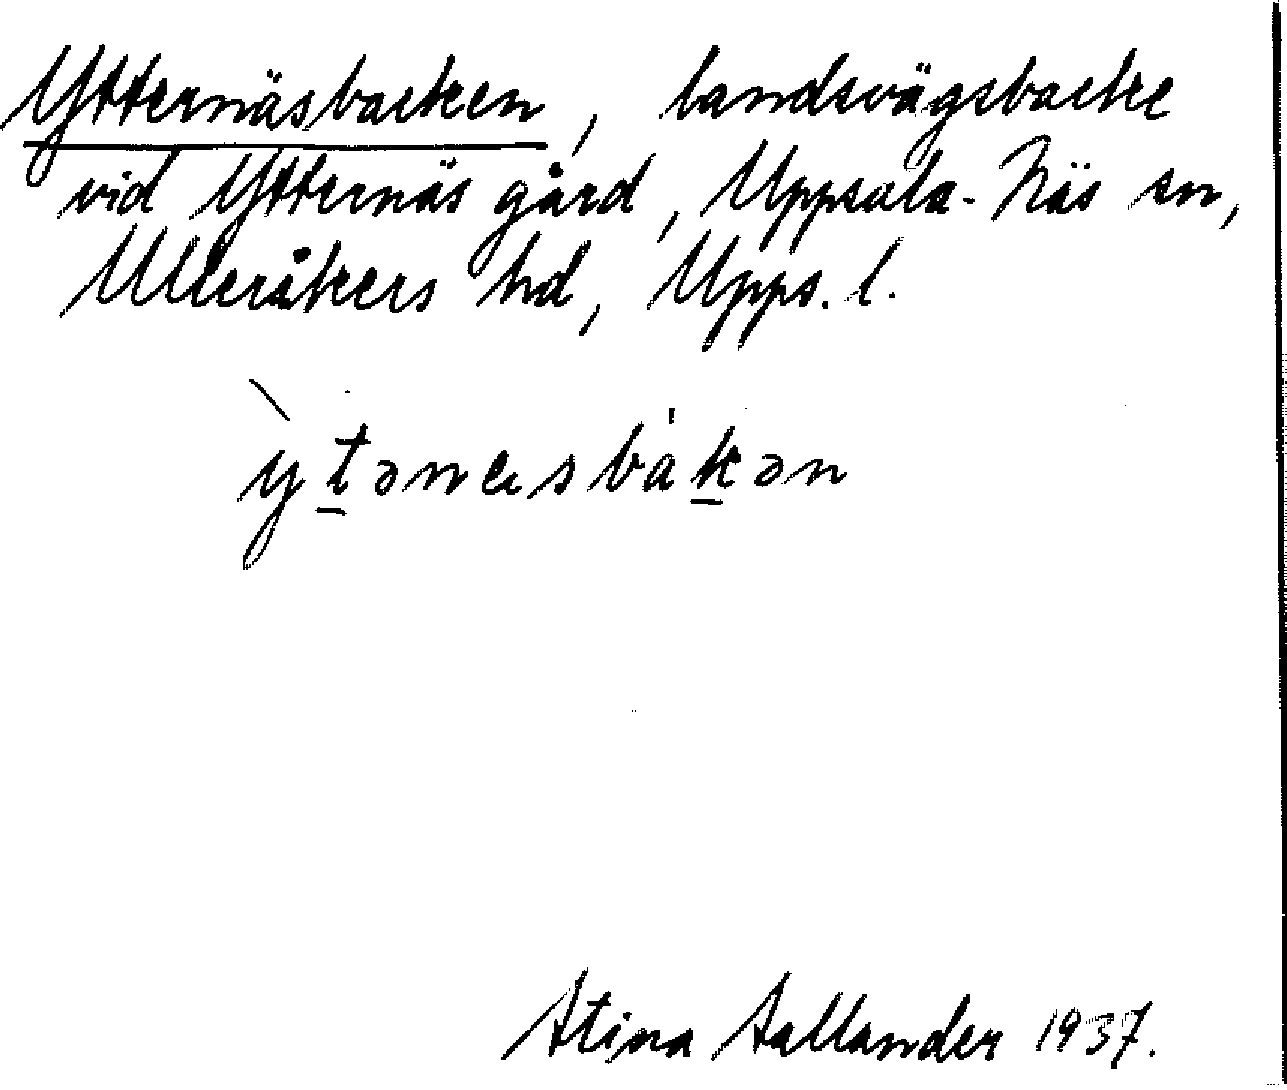 Ytternäsbacken, landsvägsbacke
vid Ytternäs gård, Uppsala-Näs sn,
Ulleråkers hd, Upps. l.
Stina Sallander 1937.